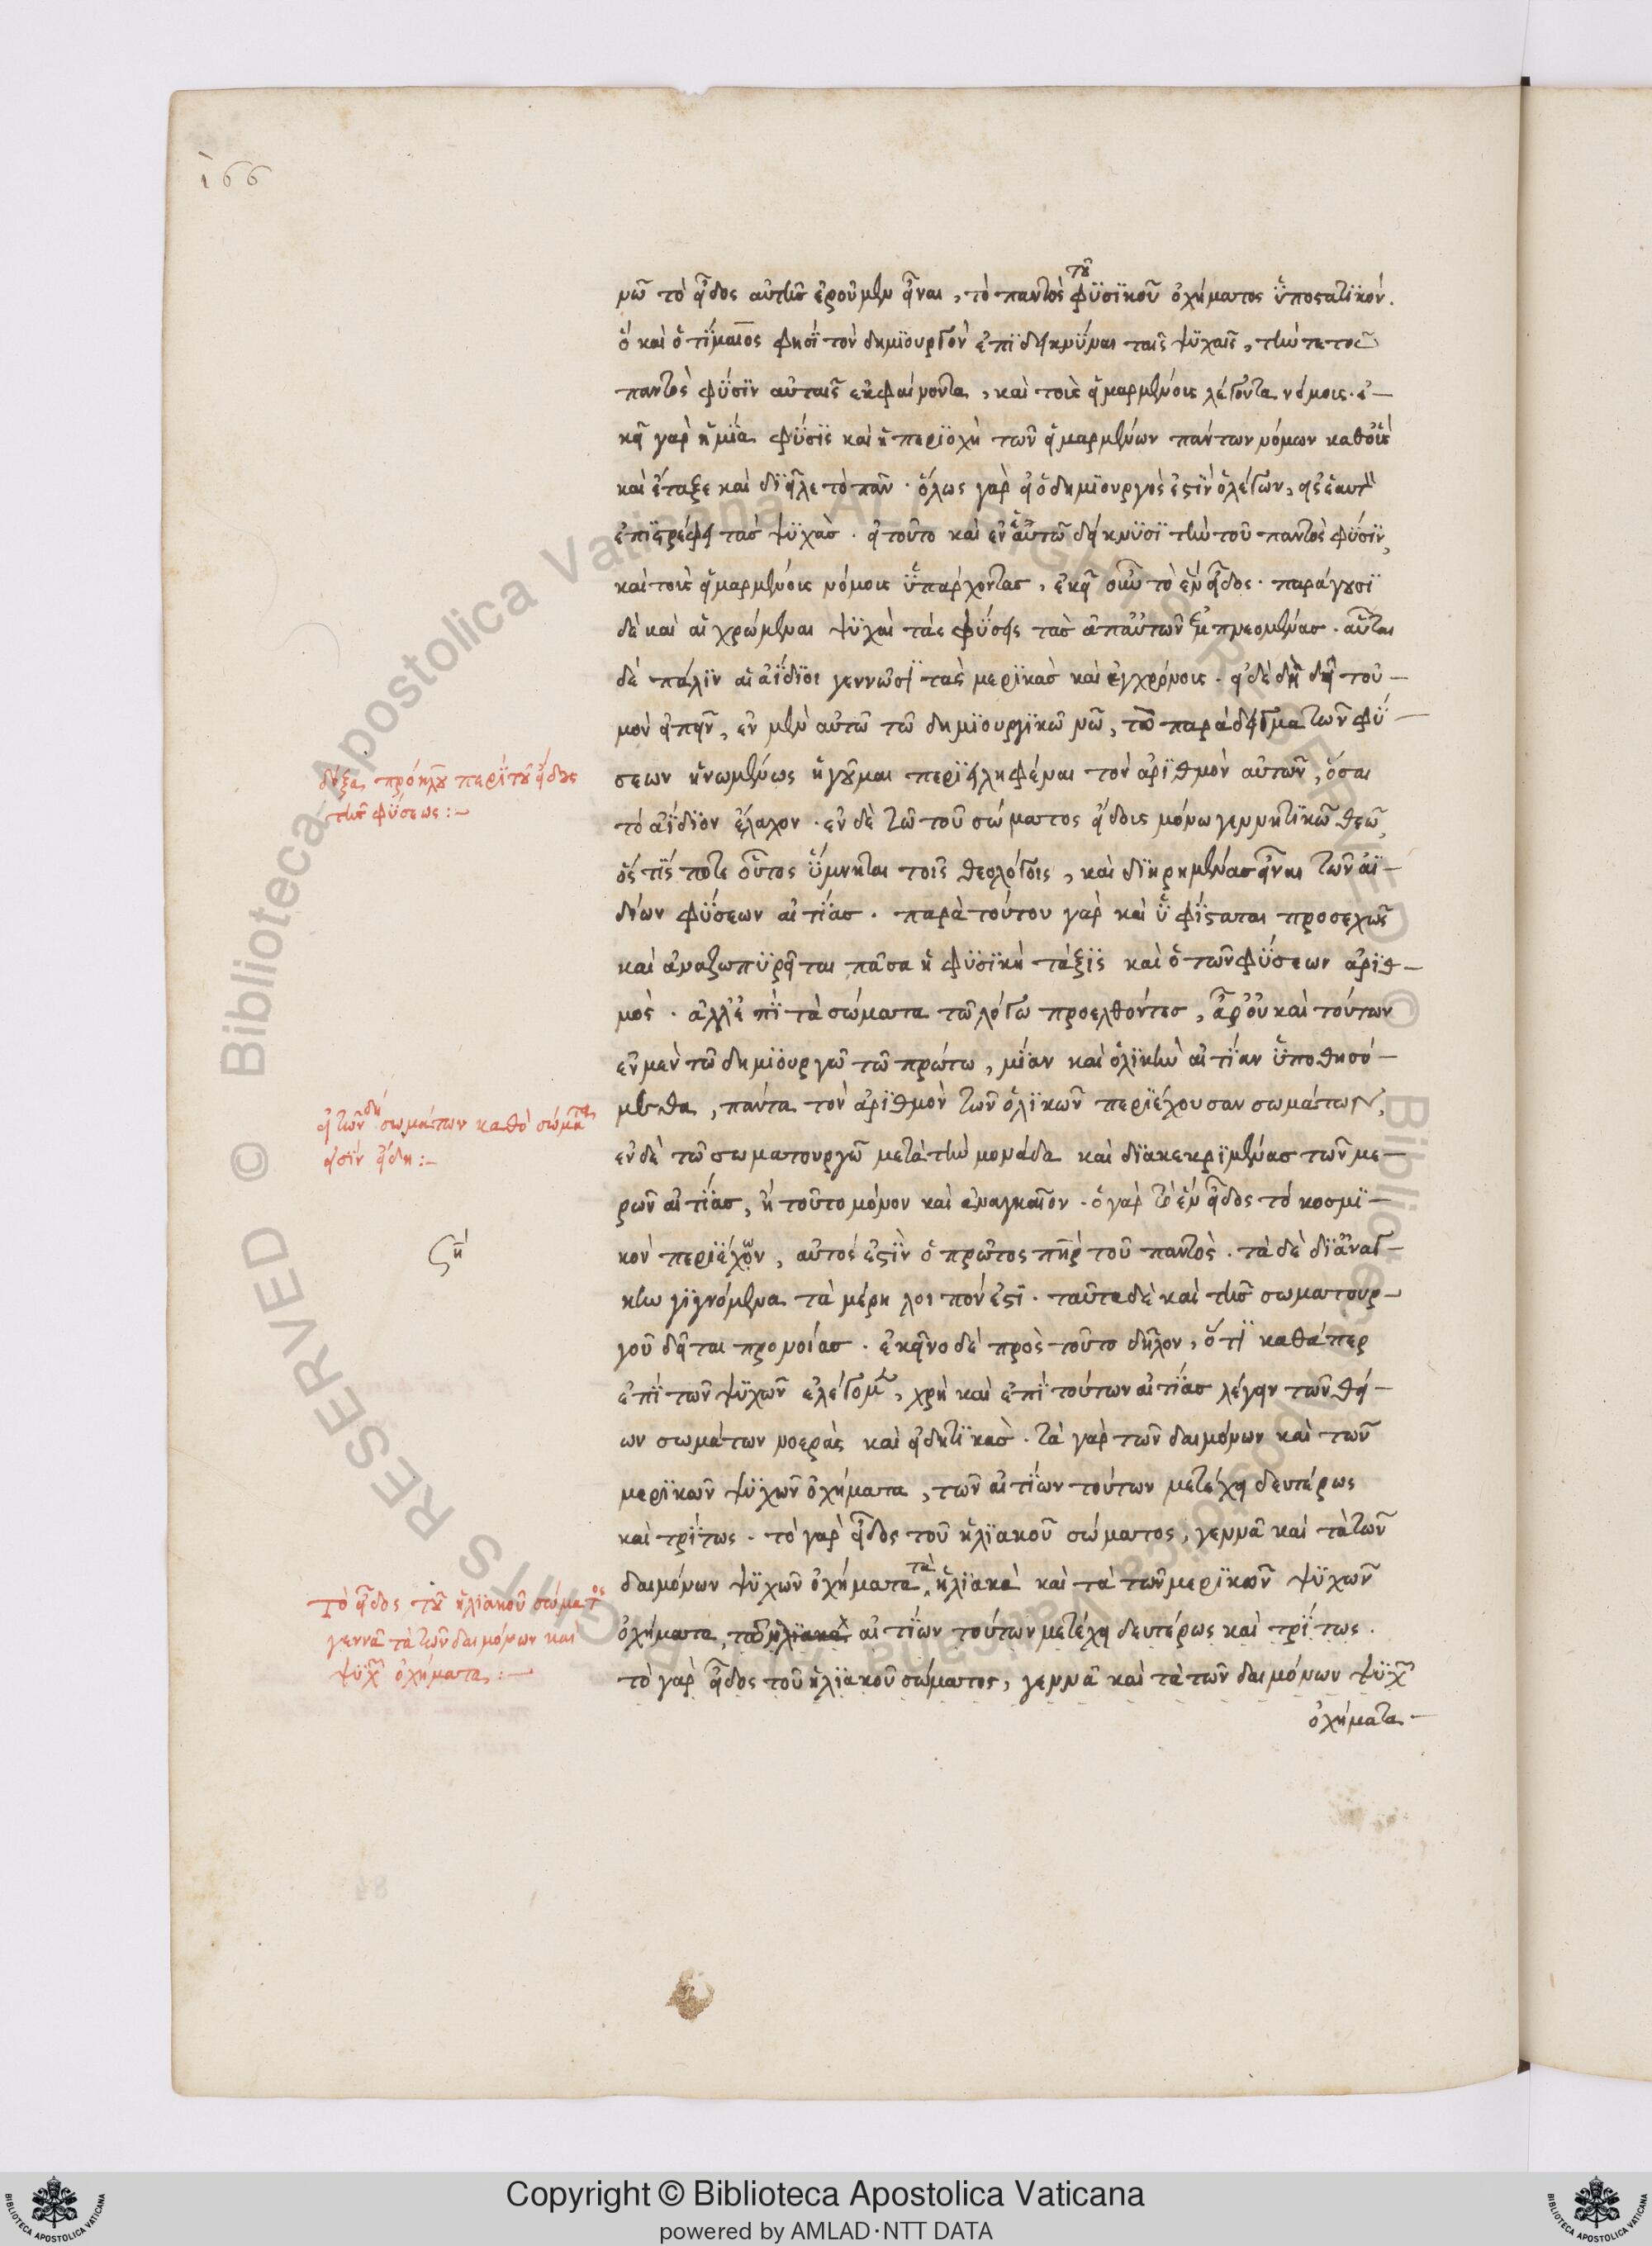 166
νῶ τὸ εἶδος αὐτῆς ἐροῦμεν εἶναι, τὸ παντὸς τοῦ φυσικοῦ ὀχήματος ὑποστατικόν.
ὃ καὶ ὁ τίμαιος φησὶ τὸν δημιουργὸν ἐπιδεικνύναι ταῖς ψυχαῖς, τήν τε τοῦ
παντὸς φύσιν αὐταῖς ἐκφαίνοντα, καὶ τοὺς εἱμαρμένους λέγοντα νόμους. ἐ-
κεῖ γὰρ ἡ μία φύσις καὶ ἡ περιοχὴ τῶν εἱμαρμένων πάντων νόμων καθ' οὓς
καὶ ἔταξε καὶ διεῖλε τὸ πᾶν. ὅλως γὰρ εἰ ὁ δημιουργός ἐστιν ὁ λέγων, εἰς ἑαυτὸν
ἐπιστρέφει τὰς ψυχάς. εἰ τοῦτο καὶ ἐν ἑαυτῶ δείκνυσι τὴν τοῦ παντὸς φύσιν,
καὶ τοὺς εἱμαρμένους νόμους ὑπάρχοντας, ἐκεῖ οὖν τὸ ἓν εἶδος. παράγουσι
δὲ καὶ αἱ χρώμεναι ψυχαὶ τὰς φύσεις τὰς ἀπ' αὐτῶν ἐμπνεομένας. αὗται
δὲ πάλιν αἱ ἀΐδιοι γεννῶσι τὰς μερικὰς καὶ ἐγχρόνους. εἰ δὲ δὴ δεῖ τοὐ-
μὸν εἰπεῖν, ἐν μὲν αὐτῶ τῶ δημιουργικῶ νῶ, τὸ παράδειγμα τῶν φύ-
σεων ἡνωμένως ἡγοῦμαι περιειληφέναι τὸν ἀριθμὸν αὐτῶν, ὅσαι
τὸ ἀΐδιον ἔλαχον. ἐν δὲ τῶ τοῦ σώματος εἴδους μόνω γεννητικῶ θεῶ,
ὅς τίς ποτε οὗτος ὕμνηται τοῖς θεολόγοις, καὶ διηρημένας εἶναι τῶν ἀϊ-
δίων φύσεων αἰτίας. παρὰ τούτου γὰρ καὶ ὑφίσταται προσεχῶς
καὶ ἀναζωπυρεῖται πᾶσα ἡ φυσικὴ τάξις καὶ ὁ τῶν φύσεων ἀριθ-
μός. ἀλλ' ἐπὶ τὰ σώματα τῶ λόγω προελθόντες, ἆρ' οὐ καὶ τούτων
ἐν μὲν τῶ δημιουργῶ τῶ πρώτω, μίαν καὶ ὁλικὴν αἰτίαν ὑποθησό-
μεθα, πάντα τὸν ἀριθμὸν τῶν ὁλικῶν περιέχουσαν σωμάτων,
ἐν δὲ τῶ σωματουργῶ μετὰ τὴν μονάδα καὶ διακεκριμένας τῶν με-
ρῶν αἰτίας, ἢ τοῦτο μόνον καὶ ἀναγκαῖον. ὁ γὰρ τὸ ἓν εἶδος τὸ κοσμι-
κὸν περιέχων, αὐτός ἐστιν ὁ πρῶτος πηρ τοῦ παντός. τὰ δὲ δι' ἀνάγ-
κην γιγνόμενα τὰ μέρη λοιπόν ἐστι. ταῦτα δὲ καὶ τῆς σωματουρ-
γοῦ δεῖται προνοίας. ἐκεῖνο δὲ πρὸς τοῦτο δῆλον, ὅτι καθάπερ
ἐπὶ τῶν ψυχῶν ἐλέγομεν, χρὴ καὶ ἐπὶ τούτων αἰτίας λέγειν τῶν θεί-
ων σωμάτων νοερὰς καὶ εἰδητικάς. τὰ γὰρ τῶν δαιμόνων καὶ τῶν
μερικῶν ψυχῶν ὀχήματα, τῶν αἰτίων τούτων μετέχει δευτέρως
καὶ τρίτως. τὸ γὰρ εἶδος τοῦ ἡλιακοῦ σώματος, γεννᾶ καὶ τὰ τῶν
δαιμόνων ψυχῶν ὀχήματα τὰ ἡλιακὰ καὶ τὰ τῶν μερικῶν ψυχῶν
ὀχήματα, τῶν ἡλιακὰ αἰτίων τούτων μετέχει δευτέρως καὶ τρίτως.
τὸ γὰρ εἶδος τοῦ ἡλιακοῦ σώματος, γεννᾶ καὶ τὰ τῶν δαιμόνων ψυχῶν
ὀχήματα
δόξα πρόκλου περὶ τοῦ εἴδους
τῆς φύσεως:
εἰ τῶν δὴ σωμάτων καθὸ σώματα
εἰσὶν εἴδη:
ζη
τὸ εἶδος τοῦ ἡλιακοῦ σώματος
γεννᾶ τὰ τῶν δαιμόνων καὶ
ψυχῶν ὀχήματα:
© Biblioteca Apostolica Vaticana ALL RIGHTS RESERVED
Copyright © Biblioteca Apostolica Vaticana
powered by AMLAD·NTT DATA